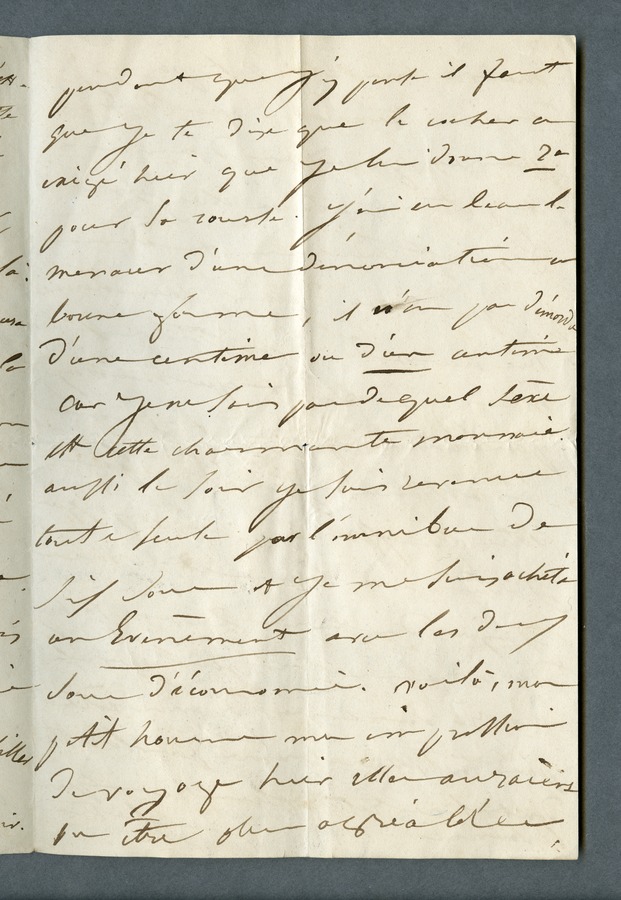 pendant que j'y pense il faut
que je te dise que le cocher a
exigé hier que je lui donne
pour la course. j'ai eu beau le
menacer d'une dénonciation en
bonne forme, il n'a pas démordu
d'une centime ou d'un centime
car je ne sais pas de quel sexe
est cette charmante monnaie.
aussi le soir je suis revenue
toute seule par l'omnibus de
six sous et je me suis acheté
un Evènement avec les deux
sous d'économie. voilà, mon
petit homme mes impressions
de voyage hier elles auraient
pu être plus agréables